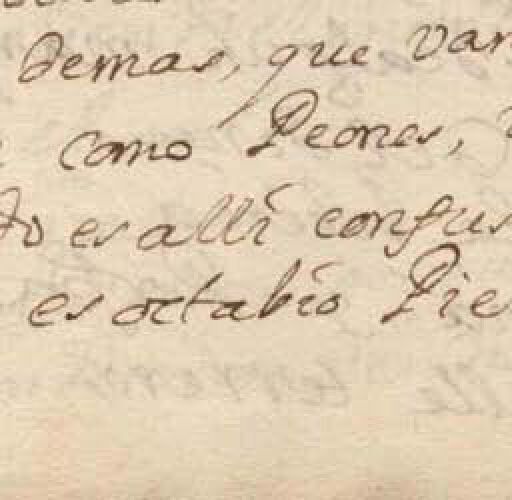 demas, que van
como Peones,
to es allí confus
es octabío Pie